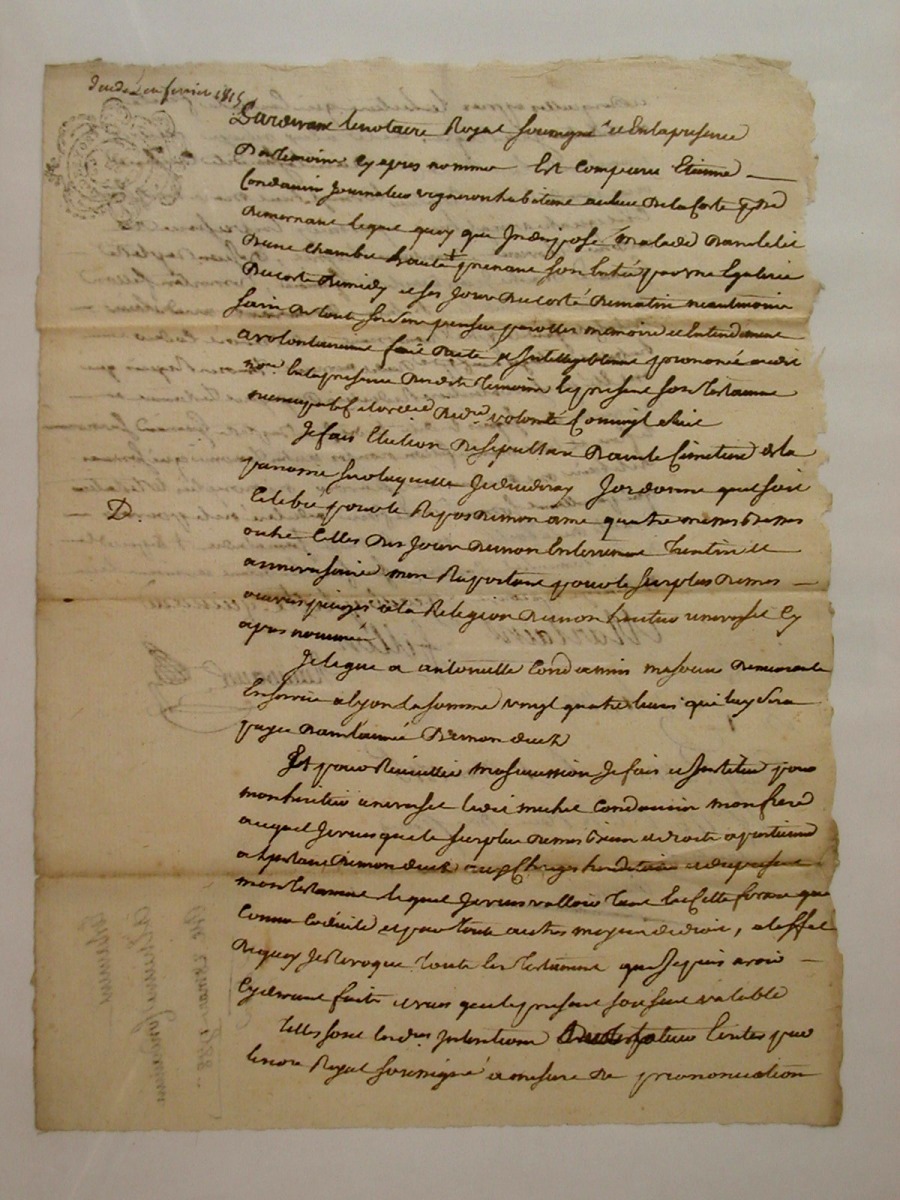 fevrier 1815
Pardevant le notaire Royal soussigné et en la presence
des temoins cy apres nommés est comparu Etienne
Condamin journalier vigneron habitant au lieu de la Coste psse
de mornant lequel quoy que indisposé malade dans le lit
d'une chambre haute + prenant son entrée par une galerie
du coté de midy et ses jours du coté de matin neantmoins
sain de tout son sens pensée parolles memoire et entendement
a volontairement fait dicté et intelligiblement prononcé audit
nore en la presence desdits temoins le present son testament
nuncupatif et ordce de dre volonté comm'il suit
Je fais election de sepulture dans le cimetiere de la
paroisse sur laquelle je decederay j'ordonne que soit
D.
celebré pour le repos de mon ame quatre messes basses
outre celles des jours de mon enterrement trentin et
anniversaire m'en raportant pour le surplus de mes
œuvres pieuses a la Religion de mon heritier universel cy
apres nommé
Je legue a antoinette Condamin ma soeur demeurante
en service a lyon la somme vingt quatre livres qui luy sera
payée dans l'année de mon deces
Et pour recueillir ma succession je fais et institue pour
mon heritier universel ledit michel Condamin mon frere
auquel je veus que le surplus de mes biens et droits apartienne
a l'instant de mon deces aux charges hereditaires et du present
mon testament lequel je veus valloir tant en cette forme que
comme codicile et par toute autres moyens de droit, a l'effet
de quoy je revoque toute les testaments que je puis avoir
cy devant faits et veus que le present soit seul valable
Telles sont les dres intentions du testateur ecrites par
le nore Royal soussigné a mesure de prononciation